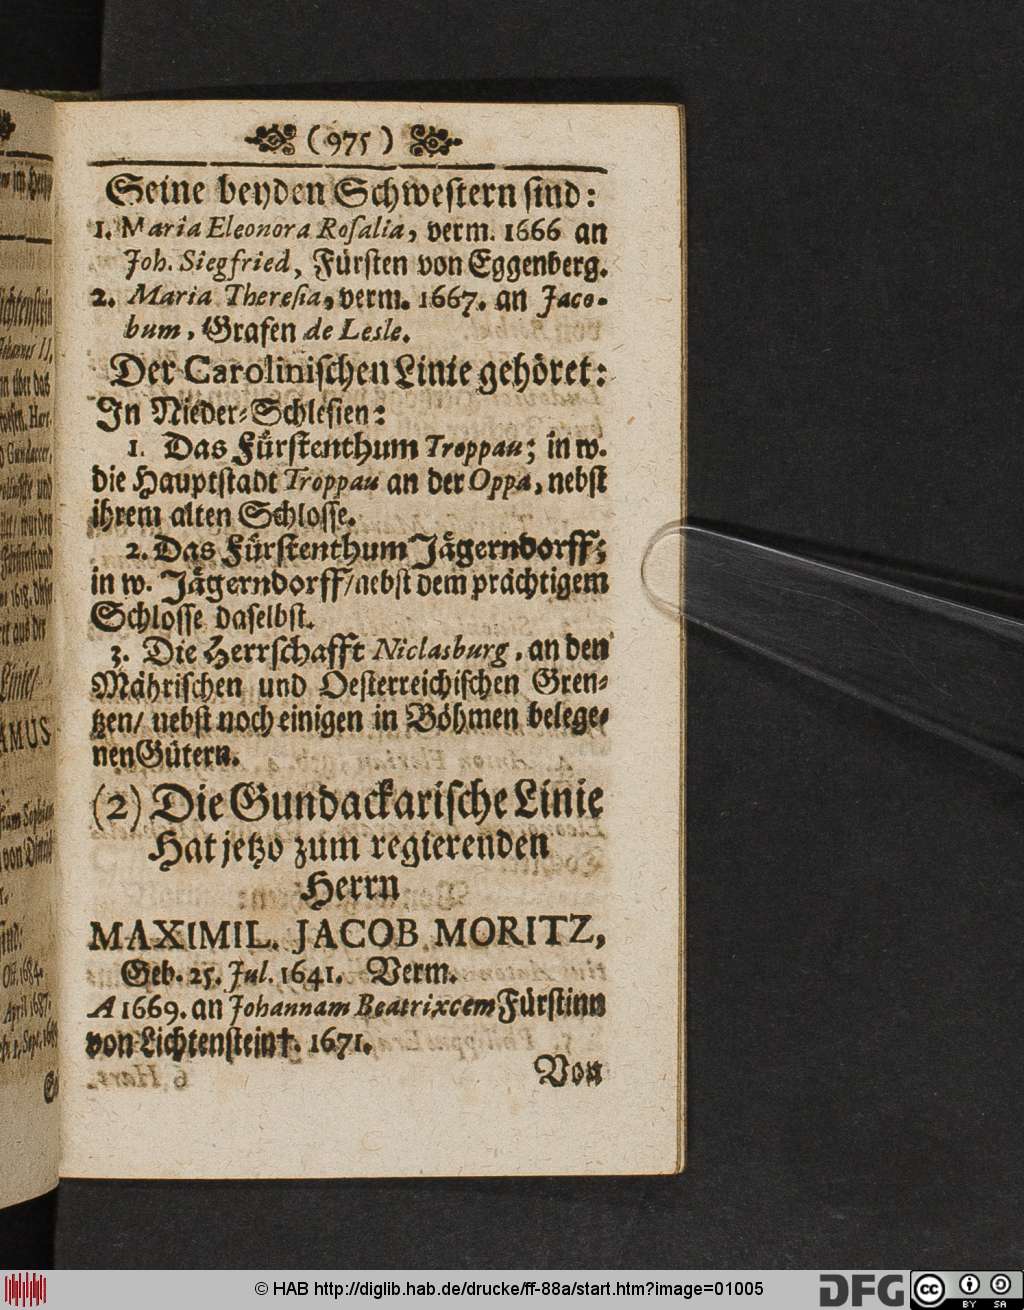 (975)
Seine beyden Schwestern sind:
1. Maria Eleonora Roſalia, verm. 1666 an
Joh. Siegfried, Fürsten von Eggenberg.
2. Maria Thereſia, verm. 1667. an Jaco-
bum, Grafen de Lesle.
Der Carolinischen Linie gehöret:
In Nieder-Schlesien:
1. Das Fürstenthum Troppau; in w.
die Hauptstadt Troppau an der Oppa, nebst
ihrem alten Schlosse.
2. Das Fürstenthum Jägerndorff;
in w. Jägerndorff/ nebst dem prächtigem
Schlosse daselbst.
3. Die Herrschafft Niclasburg, an den
Mährischen und Oesterreichischen Gren-
tzen/ nebst noch einigen in Böhmen belege-
nen Gütern.
(2) Die Gundackarische Linie
Hat jetzo zum regierenden
Herrn
MAXIMIL. JACOB MORITZ,
Geb. 25. Jul. 1641. Verm.
A 1669. an Johannam Beatrixcem Fürstinn
von Lichtenstein †. 1671.
Von
© HAB http://diglib.hab.de/drucke/ff-88a/start.htm?image=01005
DFG
CC BY SA